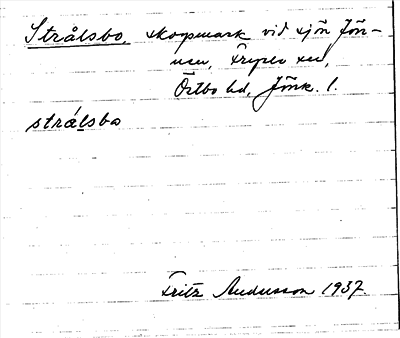 Strålsbo, skogsmark vid sjön Jön-
nen, Fryele sn,
Östbo hd, Jönk. l.
strálsbo
Fritz Andersson 1937